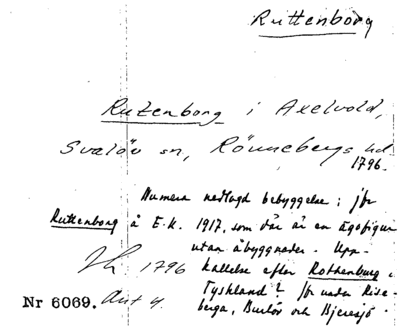 Ruttenborg
Rutenborg i Axelvold,
Svalöv sn, Rönnebergs hd
1796.
Numera nedlagd bebyggelse; jfr
Ruttenborg å E.K. 1917, som där är en ägofigur
utan åbyggnader. Upp-
Jh 1796 kallelse efter Rothenburg i
Tyskland? Jfr under Rise-
Nr 6069. Avt 4. berga, Burlöv och Bjeresjö.